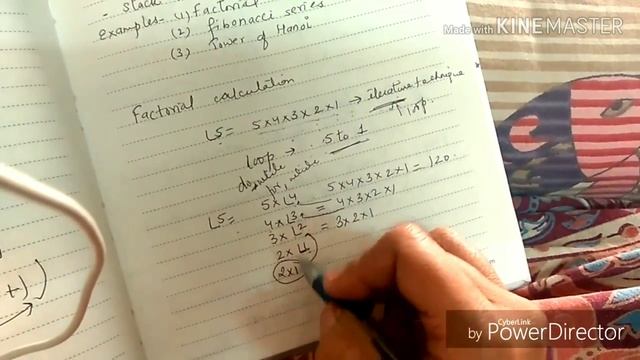 - stack
Examples- (1) factorial
(2) fibonacci series
(3) Tower of Hanoi
Made with KINEMASTER
Factorial calculation
L5 = 5x4x3x2x1 → iterative technique
loop → 5 to 1 loop.
dowhile
for, while
L5 = 5xL4 5x4x3x2x1 = 120.
4xL3 = 4x3x2x1
3xL2 = 3x2x1
2xL1
2x1
+)
CyberLink
by PowerDirector